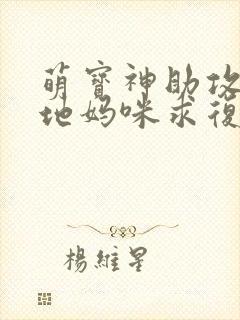 萌寶神助攻
地媽咪求復
楊維星